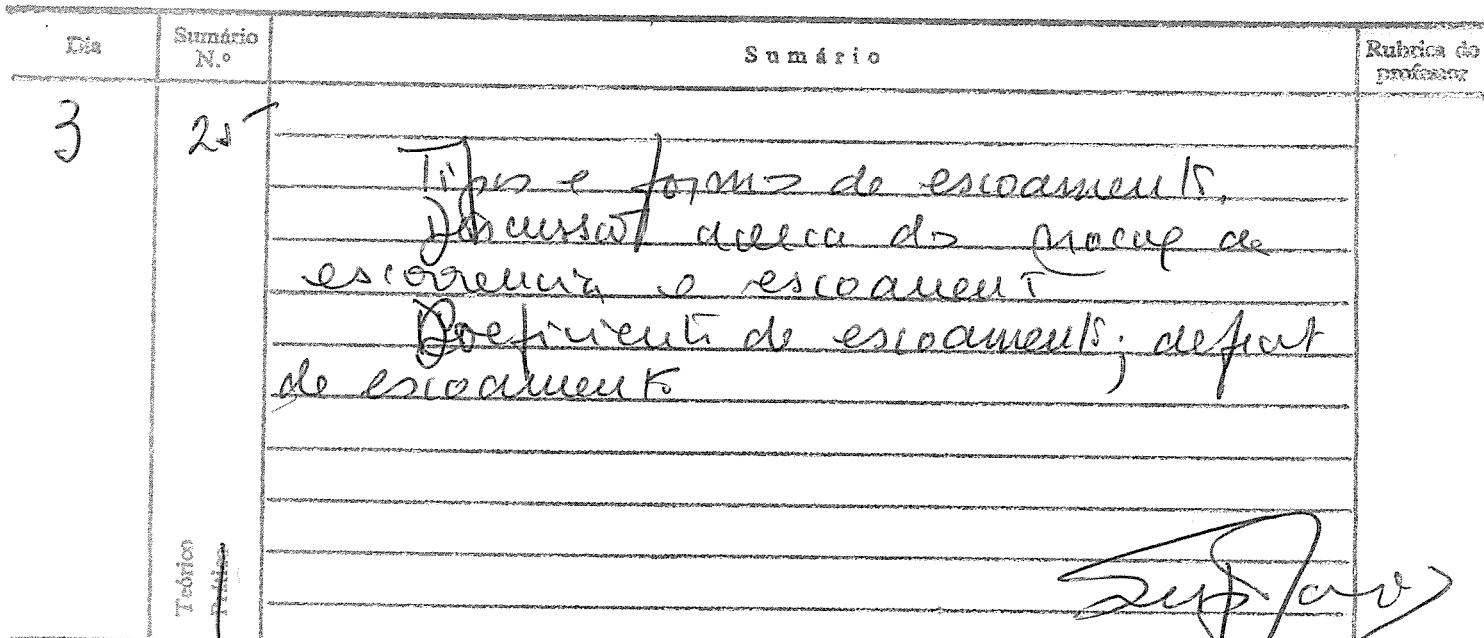 Dia Sumário N.º Sumário Rubrica do professor
3 25
Tipos e formas de escoamento.
Discussão acerca do de
escorrencia e escoamento
Coeficiente de escoamento; deficit
de escoamento
Teórico
Prático